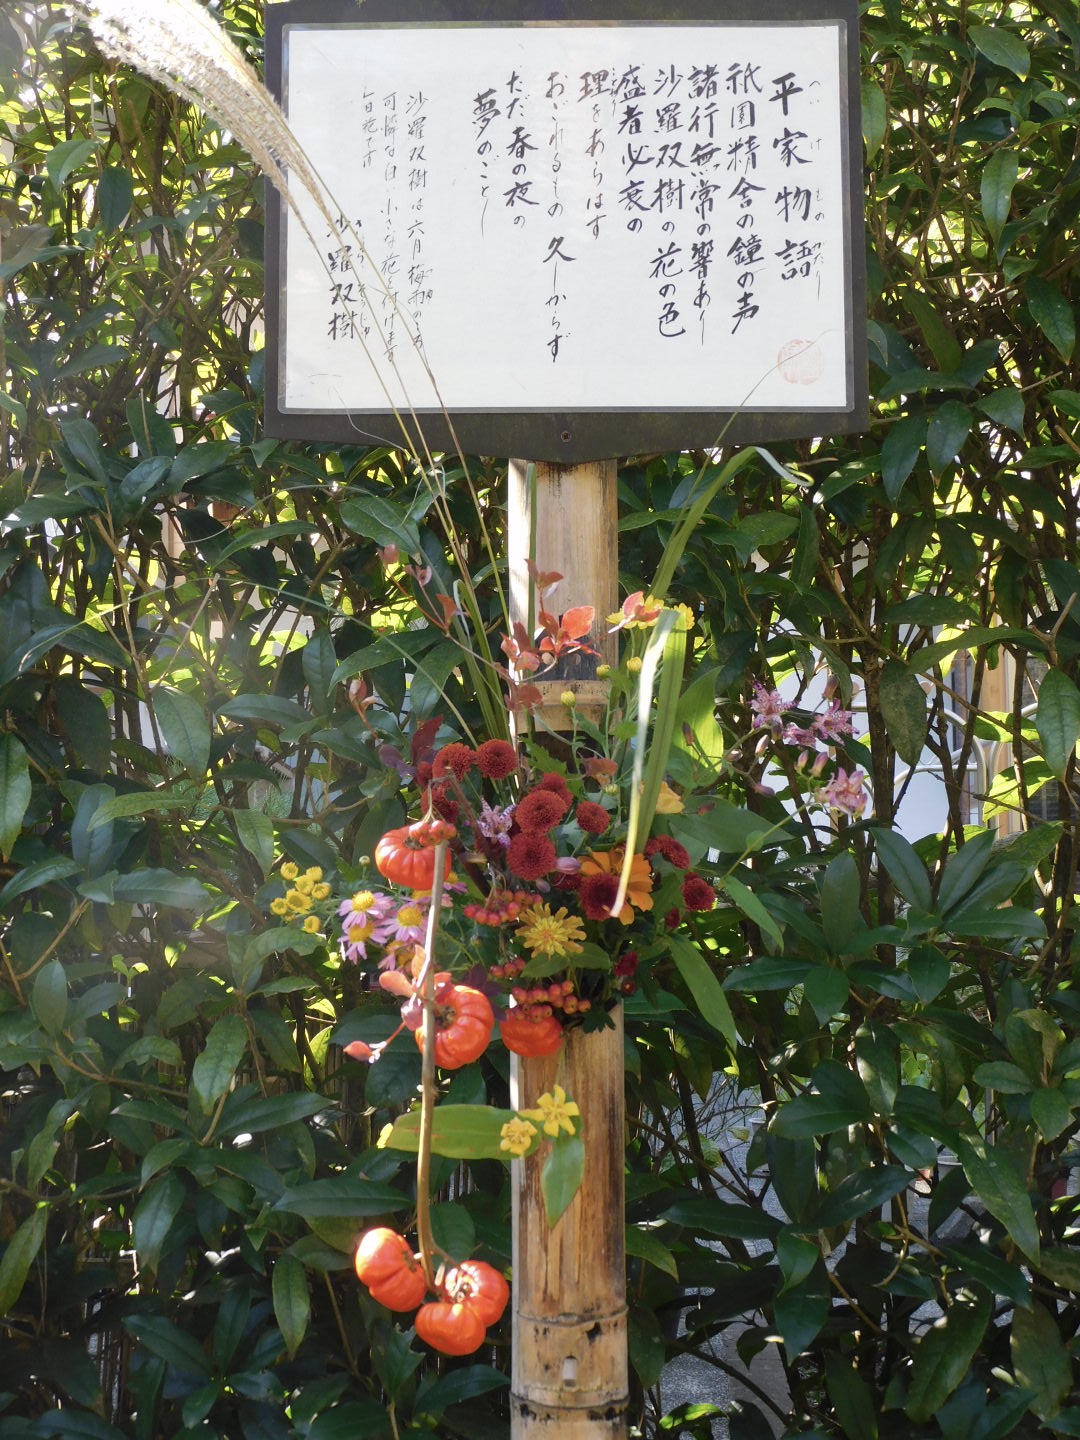 平家物語
祇園精舎の鐘の声
諸行無常の響あり
沙羅双樹の花の色
盛者必衰の
理をあらはす
おごれるもの久しからず
ただ春の夜の
夢のごとし
沙羅双樹は六月梅雨のころ
可憐な白い小さな花を付けます
一日花です
沙羅双樹